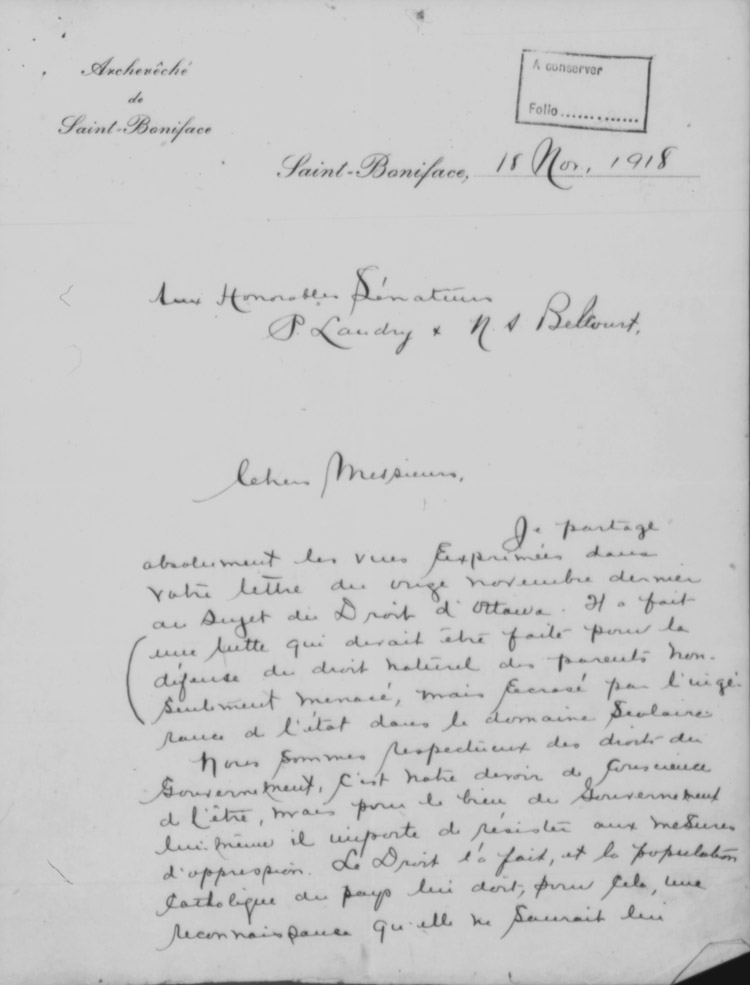 Archevêché
de
Saint-Boniface
A conserver
Folio..............
Saint-Boniface, 18 Nov. 1918
Aux Honorables Sénateurs
P. Landry & N. A Belcourt.
Chers Messieurs,
Je partage
absolument les vues exprimées dans
votre lettre du onze novembre dernier
au sujet du Droit d'Ottawa. Il a fait
une lutte qui devait être faite pour la
défense du droit naturel des parents non-
seulement menacé, mais écrasé par l'ingé-
rance de l'état dans le domaine scolaire
Nous sommes respectueux des droits du
Gouvernement, c'est notre devoir de conscience
de l'être, mais pour le bien du Gouvernement
lui-même il importe de résister aux mesures
d'oppression. Le Droit l'a fait, et la population
Catholique du pays lui doit, pour cela, une
reconnaissance qu'elle ne saurait lui